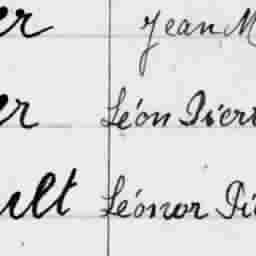 er Jean M
er Léon Pierr
ult Léonor Pi